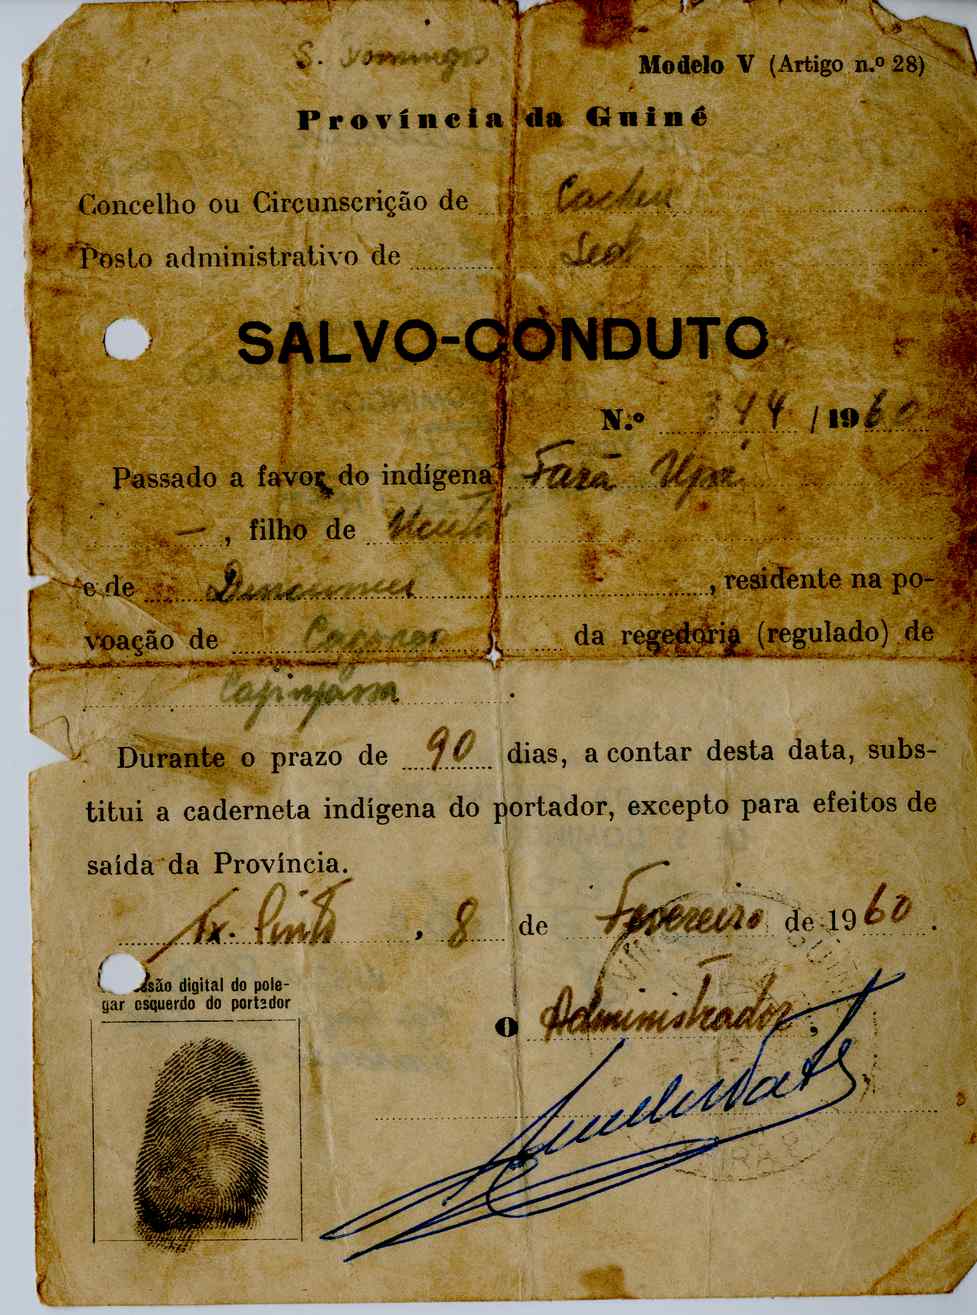 S. Domingos
Modelo V (Artigo n.º 28)
Província da Guiné
Concelho ou Circunscrição de Cacheu
Posto administrativo de Sede
SALVO-CONDUTO
N.º 344 / 1960
Passado a favor do indígena Fará
—, filho de
e de , residente na po-
voação de da regedoria (regulado) de
Durante o prazo de 90 dias, a contar desta data, subs-
titui a caderneta indígena do portador, excepto para efeitos de
saída da Província.
Tx. Pinto, 8 de Fevereiro de 1960.
são digital do pole-
gar esquerdo do portador
O Administrador,